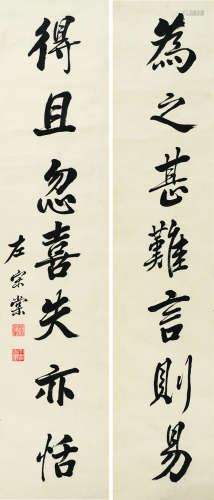 為之甚難言則易
得且勿喜失亦恬
左宗棠